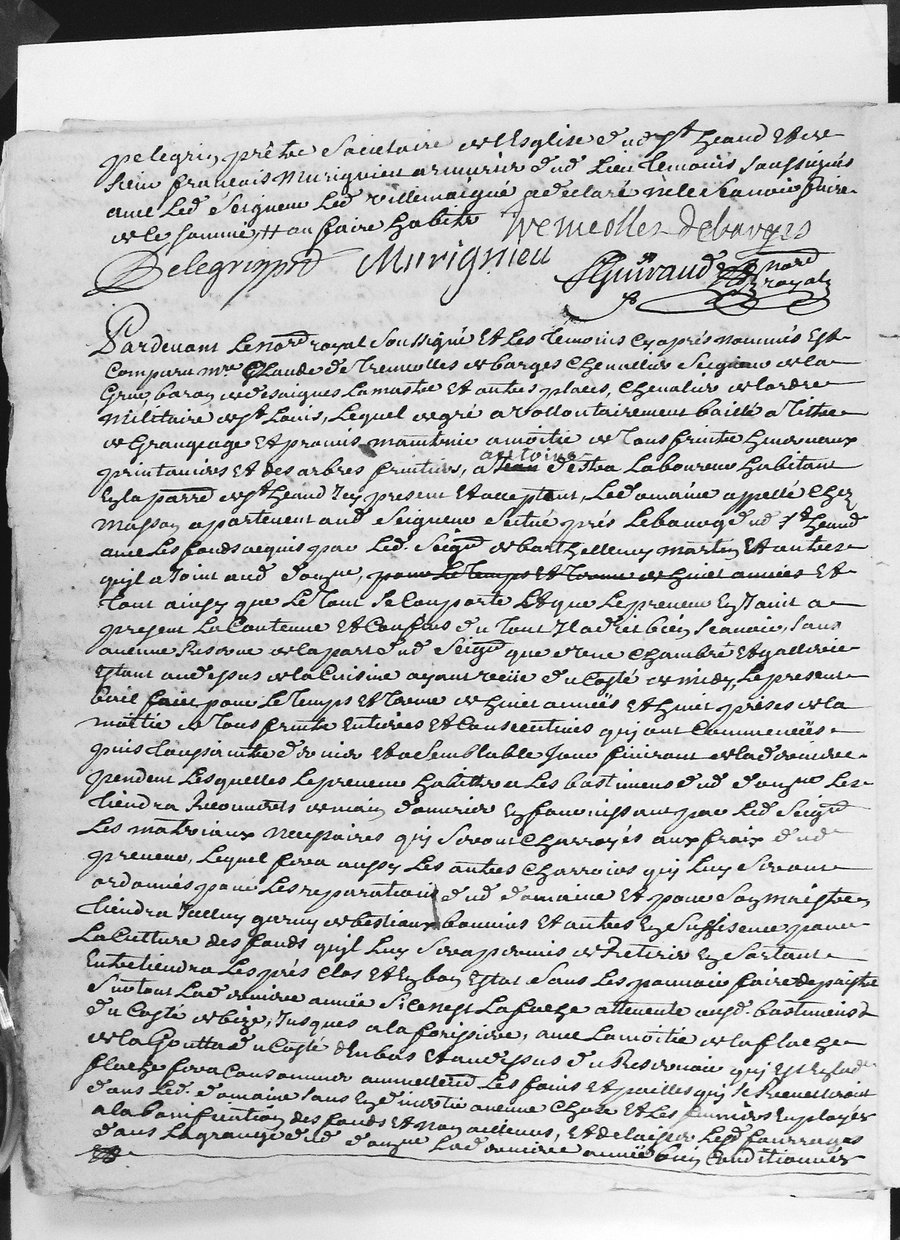 pelegrin prêtre Sacietaire de l'Esglise dud St heand et de
sieur francois Murignieu armurier dud Lieu temoins soussignés
avec Led Seigneur Led villemaigne a declaré ne le scavoir faire
de ce sommé et au faire habite
Tremeolles debarges
Pelegrin prd Murignieu
Guiraud nore royal
Pardevant Le nore royal soussigné et Les temoins cy aprés nommés est
Comparu mre Claude de tremeolles de barges chevallier Seigneur de la
Grue, baron de desaignes Lamastre et autres places, chevalier de lordre
militaire de st Louis, Lequel de gré a vollontairement baillé a tittre
de Grangeage et promis maintenir a moitié de tous fruits hivernaux
antoine
printaniers et des arbres fruitiers, a Jean Laboureur habitant
En la parre de st heand Icy present et acceptant, Le domaine appellé chez
masson apartenent aud Seigneur situé prés Lebourg dud st heand
avec Les fonds acquis par Led. Seigr de barthellemy martin et autres
quil a Joint aud domne, pour Le temps et terme de huict années et
tout ainsy que Le tout se comporte et que Le preneur En Jouit a
present La Contenue et Confins du tout Il a dit bien scavoir, sans
aucune reserve de la part dud Seigr que dune chambre et gallerie
Estant audessus de la Cuisine ayant veüe du Costé de midy, Le present
bail fait pour Le temps et terme de huict années et huict prises de la
moitié de tous fruits Entieres et Consecutives quy ont Commencées
puis La st dernier et a semblable Jour finiront de lad derniere
pendent Lesquelles Le preneur habittera Les bastimens dud domne Les
tiendra recouverts de main d'ouvrier En fournissant par Led Seigr
Les matériaux necessaires quy seront charroyés aux fraix dud
preneur, Lequel fera aussy Les autres charrois quy Luy seront
ordonnés pour Les reparations dud domaine et pour son maistre
tiendra Icelluy garny de bestiaux bouvins et autres En suffisence pour
La Culture des fonds quil Luy sera permis de retirer En sortant
Entretiendra Les prés Clos et En bon Estat sans Les pouvoir faire depaistre
Surtout Lad derniere année si ce n'est La attenente auxd. bastimens
du Costé de bize, Jusques a la avec La moitié de la
de la Goutta du Costé d'enbas et audessus du reservoir quy est En lad
fera Consommer annuellement Les foins et pailles quy se recueilliront
dans Led. domaine sans En divertir aucune chose et Les fumiers Employer
a la bonification des fonds et non ailleurs, et delaisser Lesd fourrages
dans La grange dud domne Lad derniere année bien Conditionnés